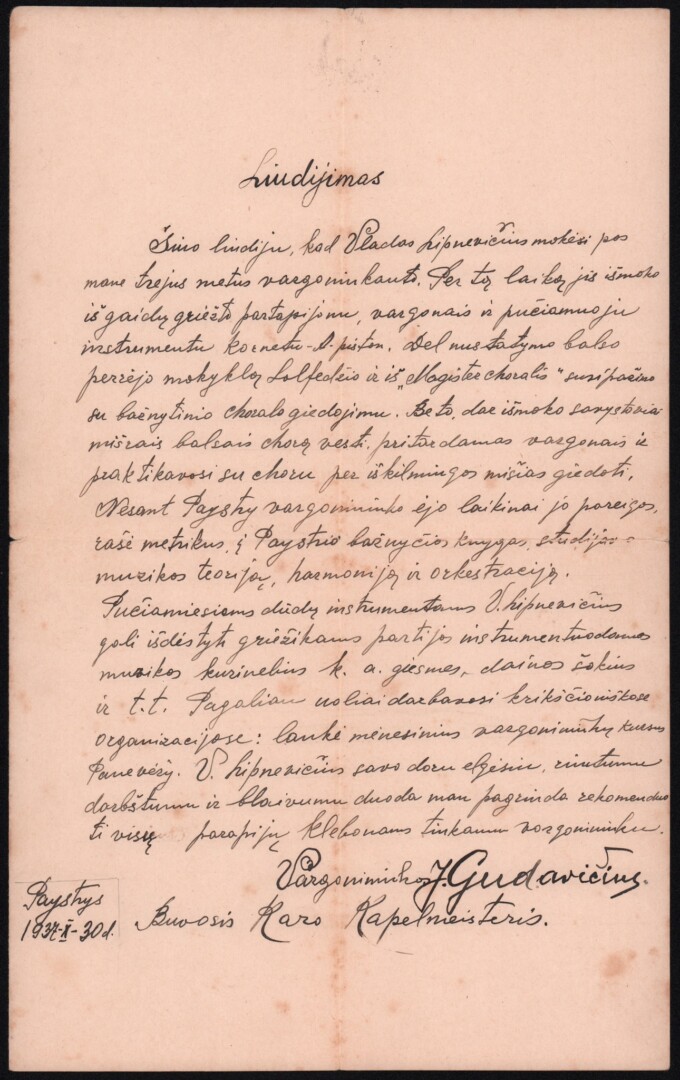 Liudijimas
Šiuo liudiju, kad Vladas Lipnevičius mokėsi pas
mane trejus metus vargoninkauti. Per tą laiką jis išmoko
iš gaidų griežti fortepijonu, vargonais ir pučiamuoju
instrumentu kornetu-A-piston. Del nustatymo balso
perėjo mokyklą Solfedžio ir iš „Magister choralis" susipažino
su bažnytinio choralo giedojimu. Be to, dar išmoko savystoviai
mišrais balsais chorą vesti, pritardamas vargonais ir
praktikavosi su choru per iškilmingas mišias giedoti.
Nesant Paystry vargonininko ėjo laikinai jo pareigas,
rašė metrikus, į Paystrio bažnyčios knygas, studijavo
muzikos teoriją, harmoniją ir orkestraciją.
Pučiamiesiems dūdų instrumentams V. Lipnevičius
gali išdėstyti griežikams partijas instrumentuodamas
muzikos kurinelius k. a. giesmes, dainas šokius
ir t.t. Pagaliau uoliai darbavosi krikščioniškose
organizacijose: lankė mėnesinius vargonininkų kursus
Panevėžy. V. Lipnevičius savo doru elgesiu, rimtumu
darbštumu ir blaivumu duoda man pagrinda rekomenduo
ti visų parapijų klebonams tinkamu vargonininku.
Vargonininkas J. Gudavičius.
Buvosis Karo Kapelmeisteris.
Paystrys
1937-X-30 d.